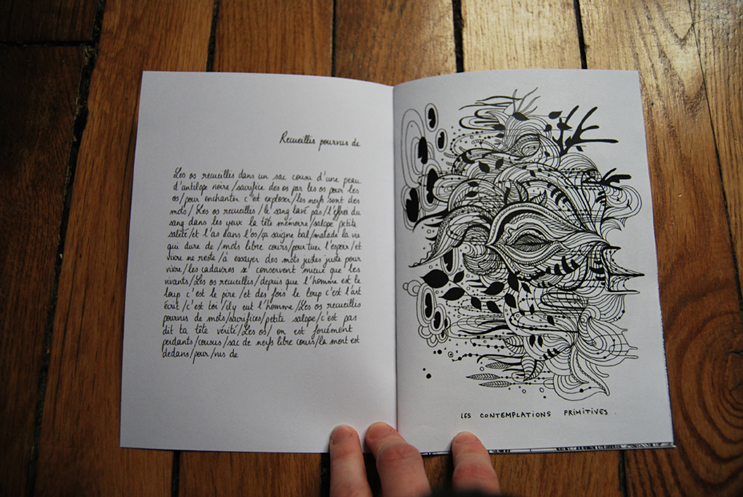 Recueillis pourvus de
Les os recueillis dans un sac cousu d'une peau
d'antilope noire/sacrifice des os par les os pour les
os/pour enchanter c'est explorer/les nerfs sont des
mots/Les os recueillis/le sang lavé pas/l'effroi du
sang dans les yeux la tête mémoire/salope petite
saleté/et l'as dans l'os/ça saigne bal/malade la vie
qui dure de/mots libre cours/pour tuer l'espoir/et
vivre ne reste/à essayer des mots justes juste pour
vivre/les cadavres se conservent mieux que les
vivants/Les os recueillis/depuis que l'homme est le
loup c'est le pire/et des fois le loup c'est l'art
écrit/c'est toi/il y eut l'homme/Les os recueillis
pourvus de mots/sacrifices/petite salope/c'est pas
dit ta tête vérité/Les os/on est forcément
perdants/cousus/sac de nerfs libre cours/la mort est
dedans/pour/vus de
LES CONTEMPLATIONS PRIMITIVES.